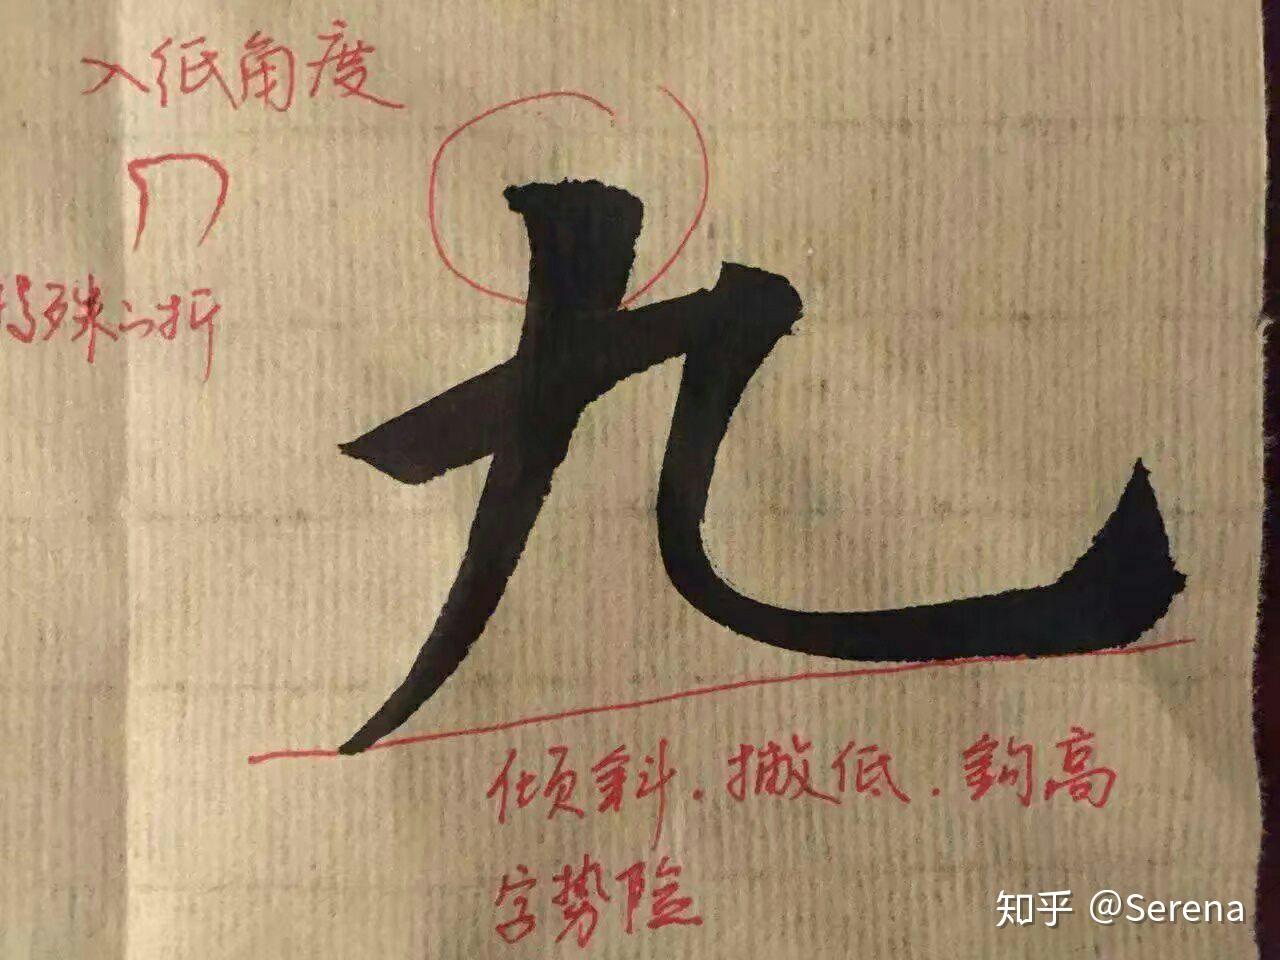 入纸角度
特殊的折
九
倾斜.撇低.鈎高
字势险
知乎 @Serena